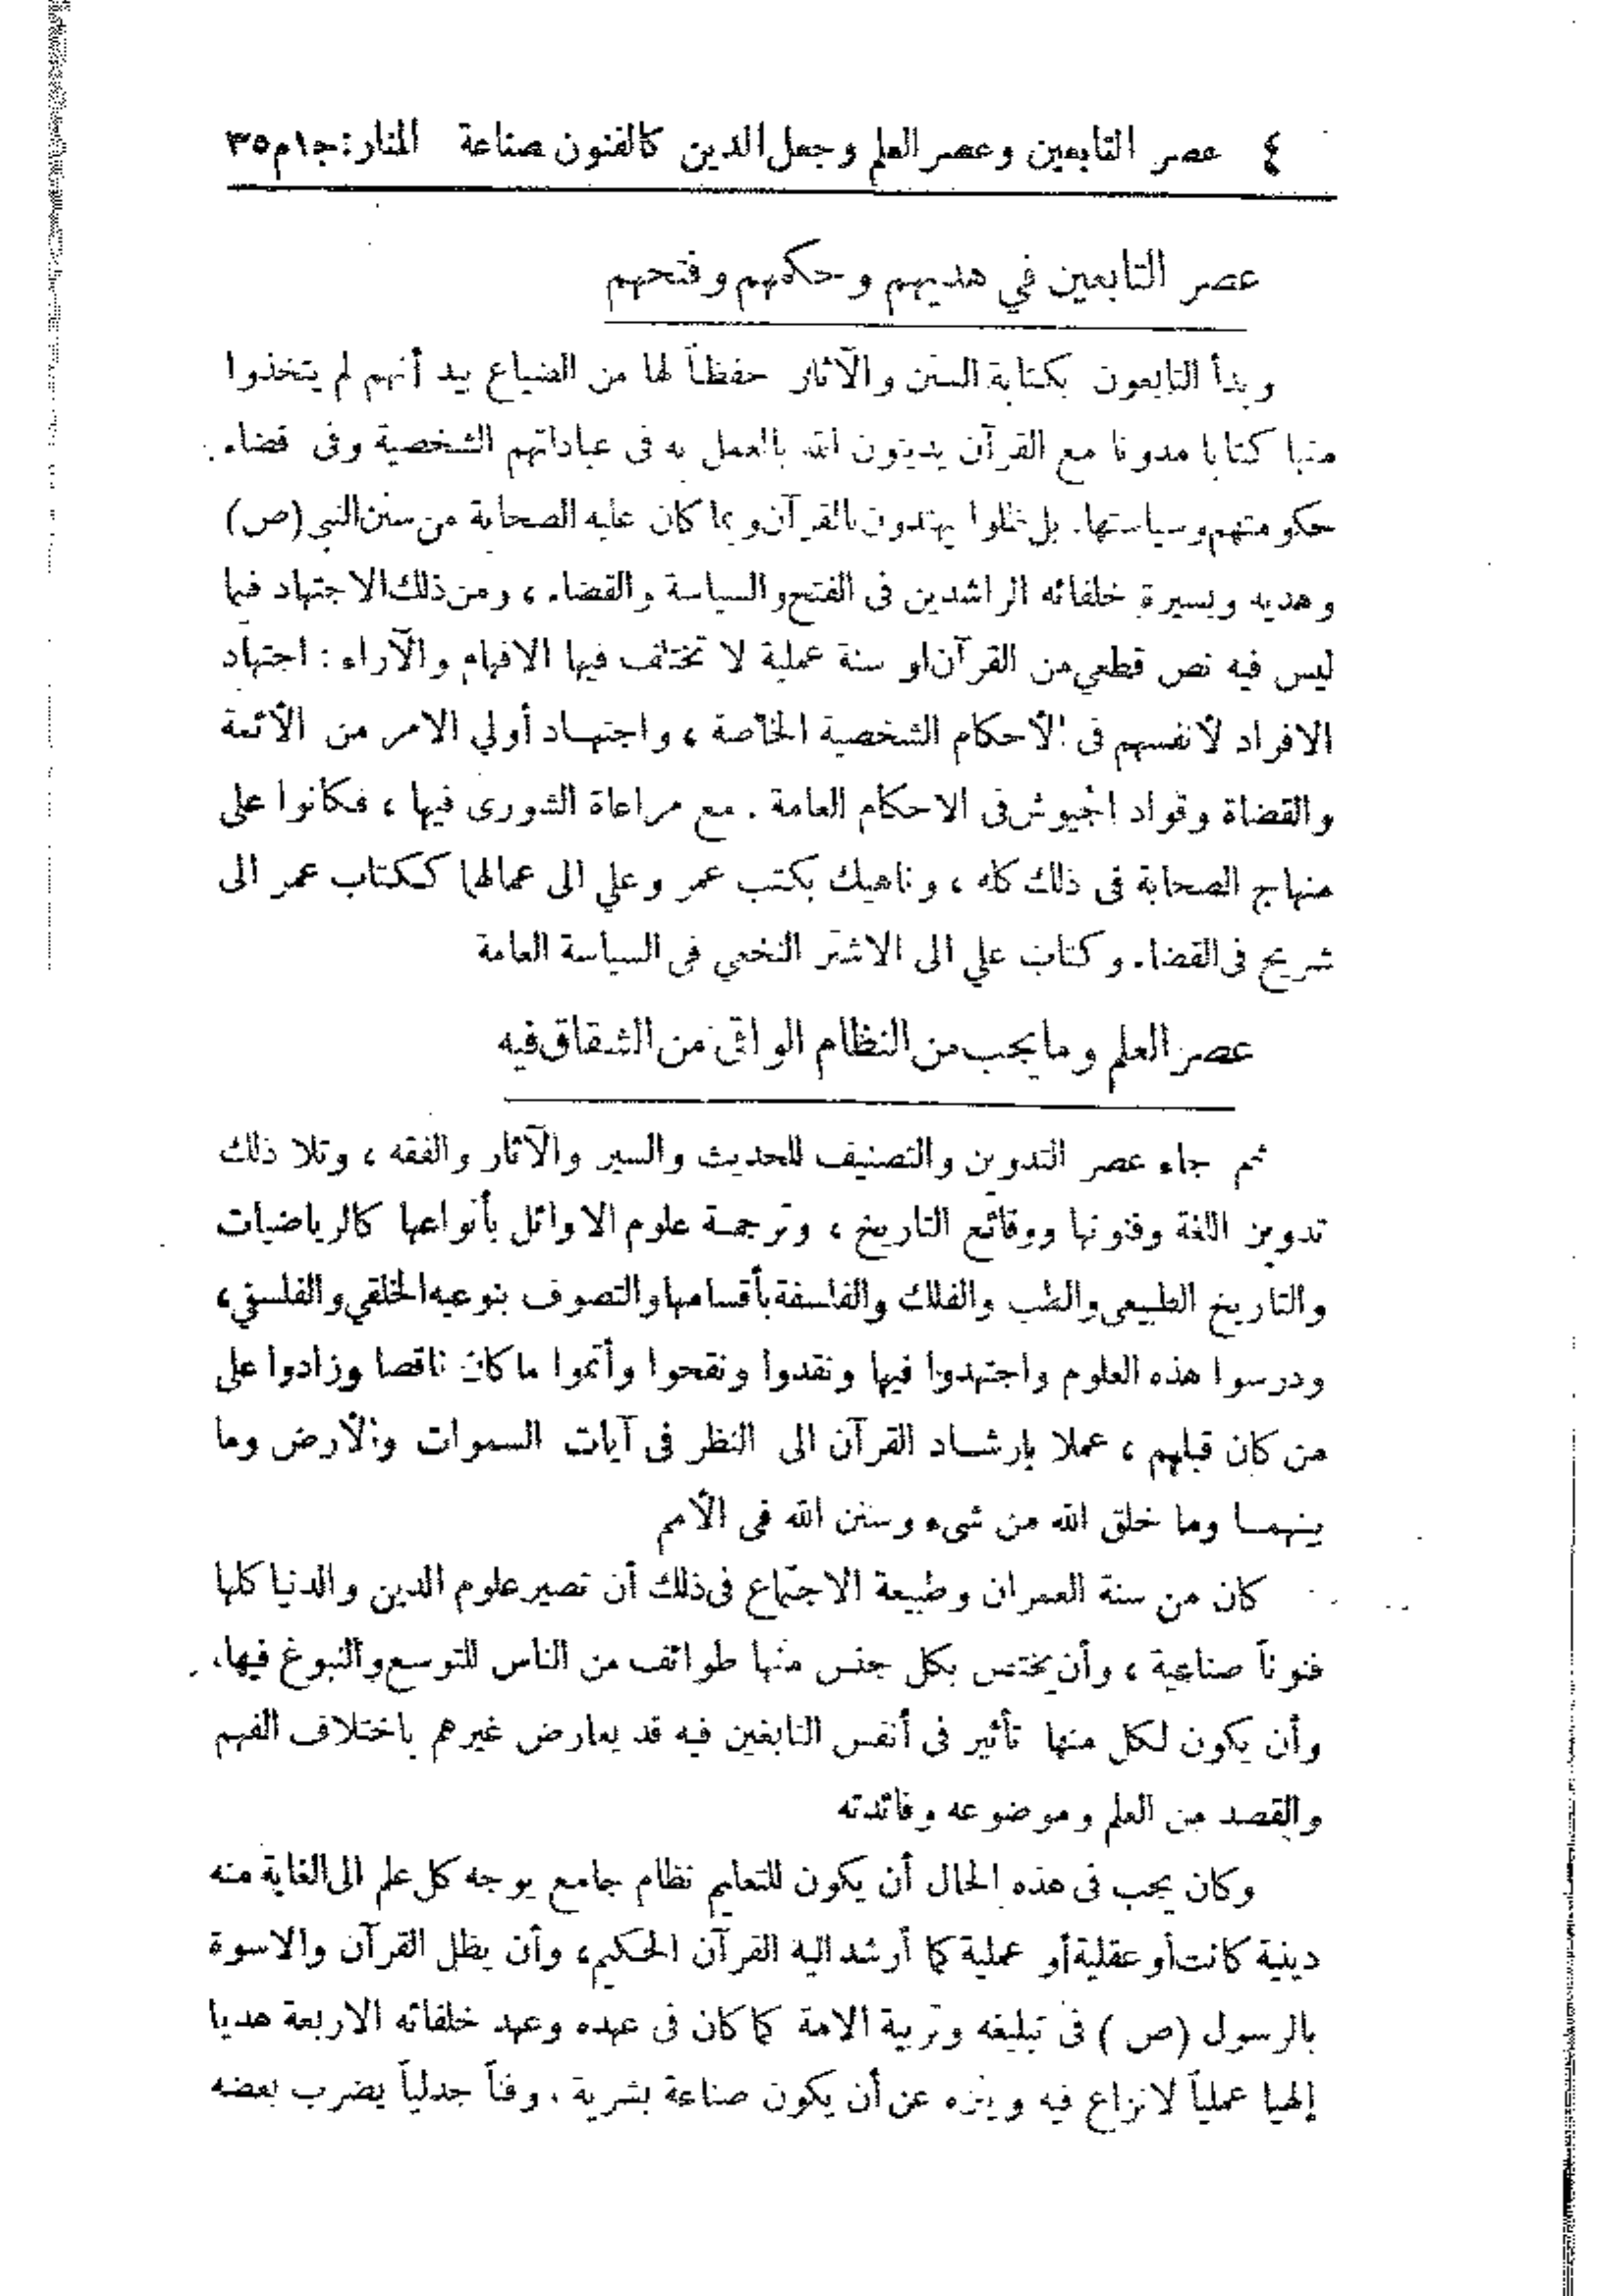 ٤ عصر التابعين وعصر العلم وجعل الدين كالفنون صناعة المنار : ج١ م٣٥
عصر التابعين في هديهم وحكمهم وفتحهم
وبدأ التابعون بكتابة السنن والآثار حفظاً لها من الضياع بيد أنهم لم يتخذوا
منها كتابا مدونا مع القرآن يدينون الله بالعمل به فى عباداتهم الشخصية وفى قضاء
حكومتهم وسياستها. بل ظلوا يهتدون بالقرآن وبما كان عليه الصحابة من سنن النبي (ص)
وهديه وبسيرة خلفائه الراشدين فى الفتح والسياسة والقضاء ، ومن ذلك الاجتهاد فيما
ليس فيه نص قطعي من القرآن او سنة عملية لا تختلف فيها الافهام والآراء : اجتهاد
الافراد لأنفسهم فى الأحكام الشخصية الخاصة ، واجتهاد أولي الامر من الأئمة
والقضاة وقواد الجيوش فى الاحكام العامة . مع مراعاة الشورى فيها ، فكانوا على
منهاج الصحابة فى ذلك كله ، وناهيك بكتب عمر وعلي الى عمالهما ككتاب عمر الى
شريح فى القضاء وكتاب علي الى الاشتر النخعي فى السياسة العامة
عصر العلم وما يجب من النظام الواقي من الشقاق فيه
ثم جاء عصر التدوين والتصنيف للحديث والسير والآثار والفقه ، وتلا ذلك
تدوين اللغة وفنونها ووقائع التاريخ ، وترجمة علوم الاوائل بأنواعها كالرياضيات
والتاريخ الطبيعى والطب والفلك والفلسفة بأقسامها والتصوف بنوعيه الخلقي والفلسفي ،
ودرسوا هذه العلوم واجتهدوا فيها ونقدوا ونقحوا وأتموا ما كان ناقصا وزادوا على
من كان قبلهم ، عملا بإرشاد القرآن الى النظر فى آيات السموات والأرض وما
بينهما وما خلق الله من شىء وسنن الله فى الأمم
كان من سنة العمران وطبيعة الاجتماع فى ذلك أن تصير علوم الدين والدنيا كلها
فنوناً صناعية ، وأن يختص بكل جنس منها طوائف من الناس للتوسع والنبوغ فيها،
وأن يكون لكل منها تأثير فى أنفس النابغين فيه قد يعارض غيرهم باختلاف الفهم
والقصد من العلم وموضوعه وفائدته
وكان يجب فى هذه الحال أن يكون للتعليم نظام جامع يوجه كل علم الى الغاية منه
دينية كانت أو عقلية أو عملية كما أرشد اليه القرآن الحكيم ، وأن يظل القرآن والاسوة
بالرسول (ص) فى تبليغه وتربية الامة كما كان فى عهده وعهد خلفائه الاربعة هديا
إلهيا عملياً لا نزاع فيه وينزه عن أن يكون صناعة بشرية . وفناً جدلياً يضرب بعضه